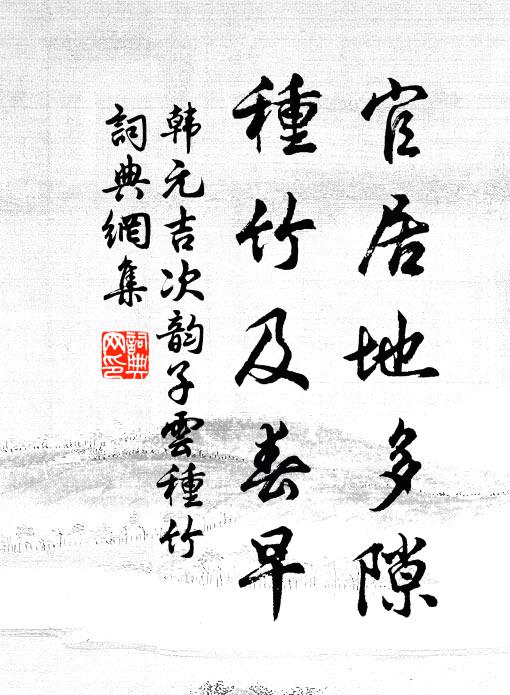 官居地多隙
種竹及春早
韩元吉次韵子雲種竹
詞典網集
詞典网印